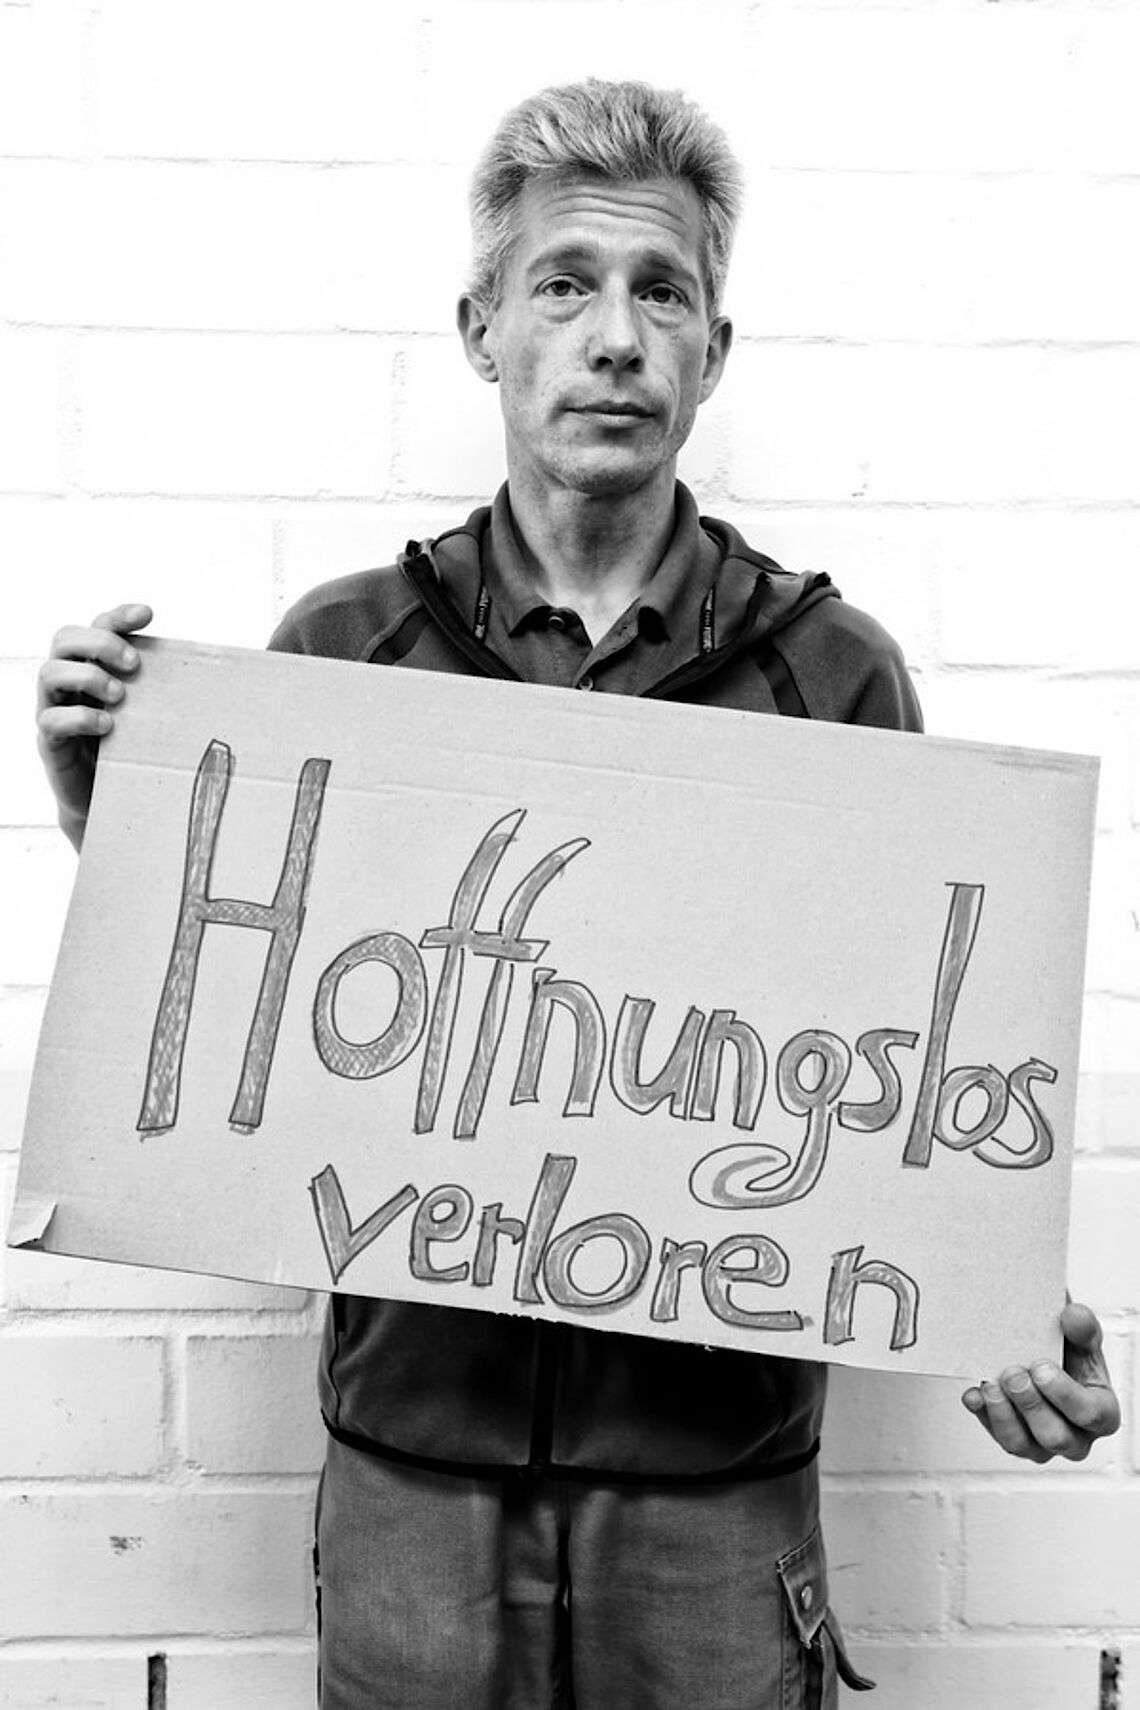 Hoffnungslos
verloren